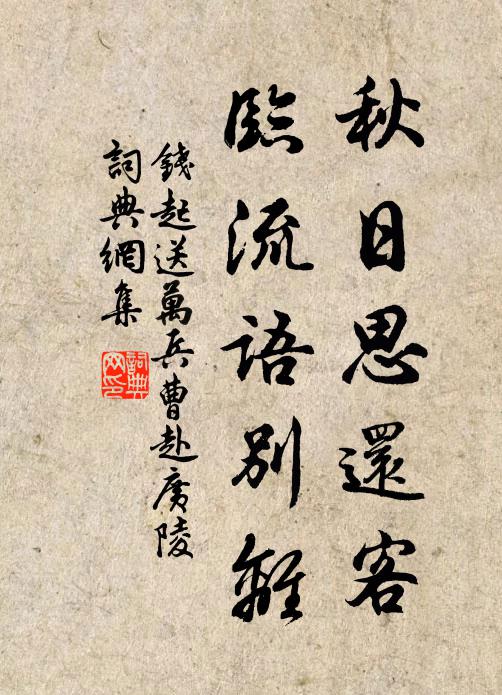 秋日思還客
臨流語別離
錢起送萬兵曹赴廣陵
詞典網集
詞典
网印